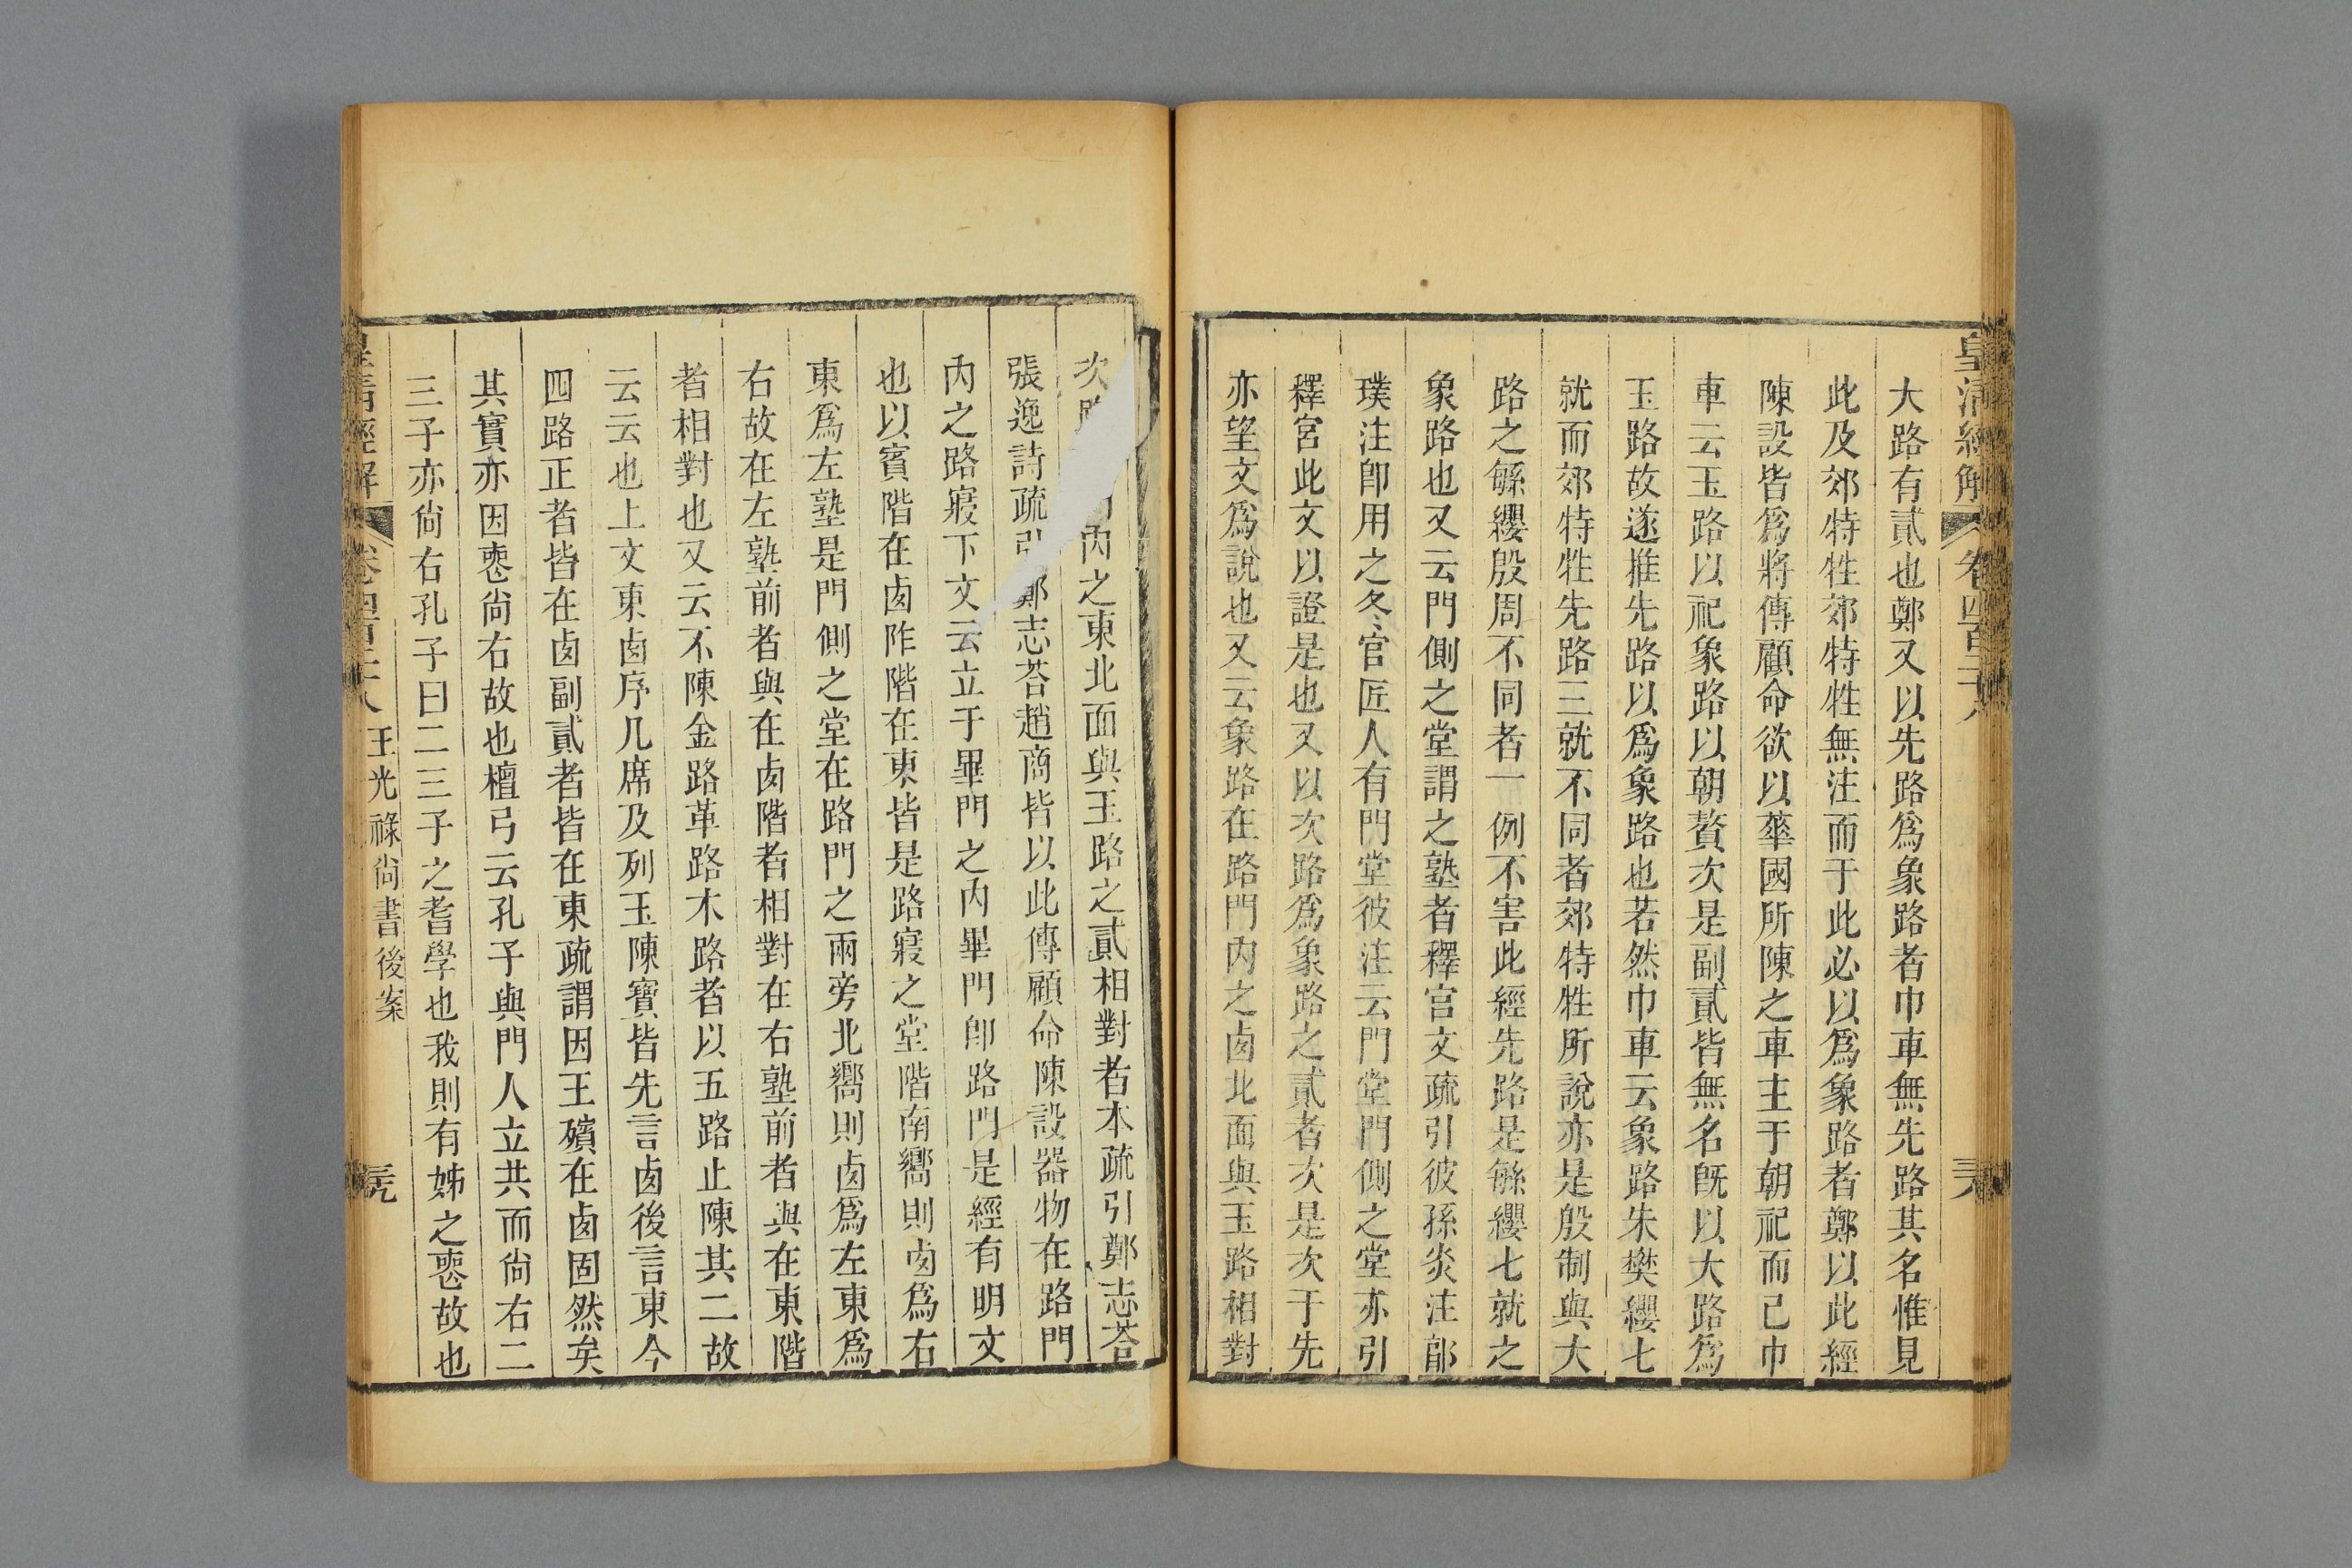 皇清經解 卷四百二十八
大路有貳也鄭又以先路爲象路者巾車無先路其名惟見
此及郊特牲郊特牲無注而于此必以爲象路者鄭以此經
陳設皆爲將傳顧命欲以華國所陳之車主于朝祀而已巾
車云玉路以祀象路以朝贅次是副貳皆無名旣以大路爲
玉路故遂推先路以爲象路也若然巾車云象路朱樊纓七
就而郊特牲先路三就不同者郊特牲所說亦是殷制與大
路之緐纓殷周不同者一例不害此經先路是緐纓七就之
象路也又云門側之堂謂之塾者釋宮文疏引彼孫炎注郭
璞注卽用之冬官匠人有門堂彼注云門堂門側之堂亦引
釋宮此文以證是也又以次路爲象路之貳者次是次于先
亦望文爲說也又云象路在路門內之卤北面與玉路相對
次路 內之東北面與玉路之貳相對者本疏引鄭志荅
張逸詩疏引鄭志荅趙商皆以此傳顧命陳設器物在路門
內之路寢下文云立于畢門之內畢門卽路門是經有明文
也以賓階在卤阼階在東皆是路寢之堂階南嚮則卤爲右
東爲左塾是門側之堂在路門之兩旁北嚮則卤爲左東爲
右故在左塾前者與在卤階者相對在右塾前者與在東階
者相對也又云不陳金路革路木路者以五路止陳其二故
云云也上文東卤序几席及列玉陳寶皆先言卤後言東今
四路正者皆在卤副貳者皆在東疏謂因王殯在卤固然矣
其實亦因悳尙右故也檀弓云孔子與門人立共而尙右二
三子亦尙右孔子曰二三子之耆學也我則有姊之悳故也
皇清經解 卷四百二十八 王光祿尙書後案